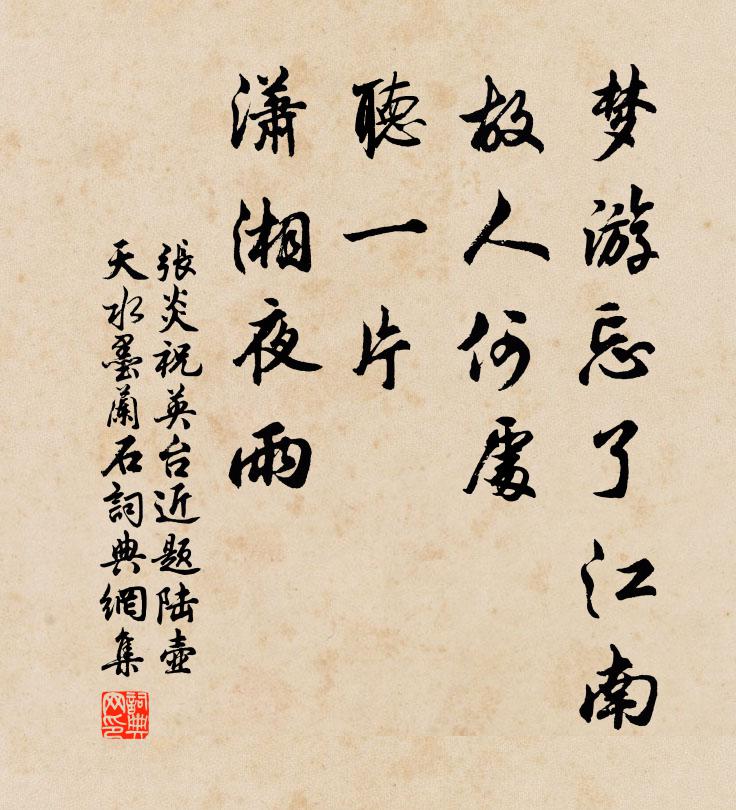 梦游忘了江南
故人何處
聽一片
潇湘夜雨
張炎祝英台近题陆壶
天水墨蘭石詞典網集
詞典
网印